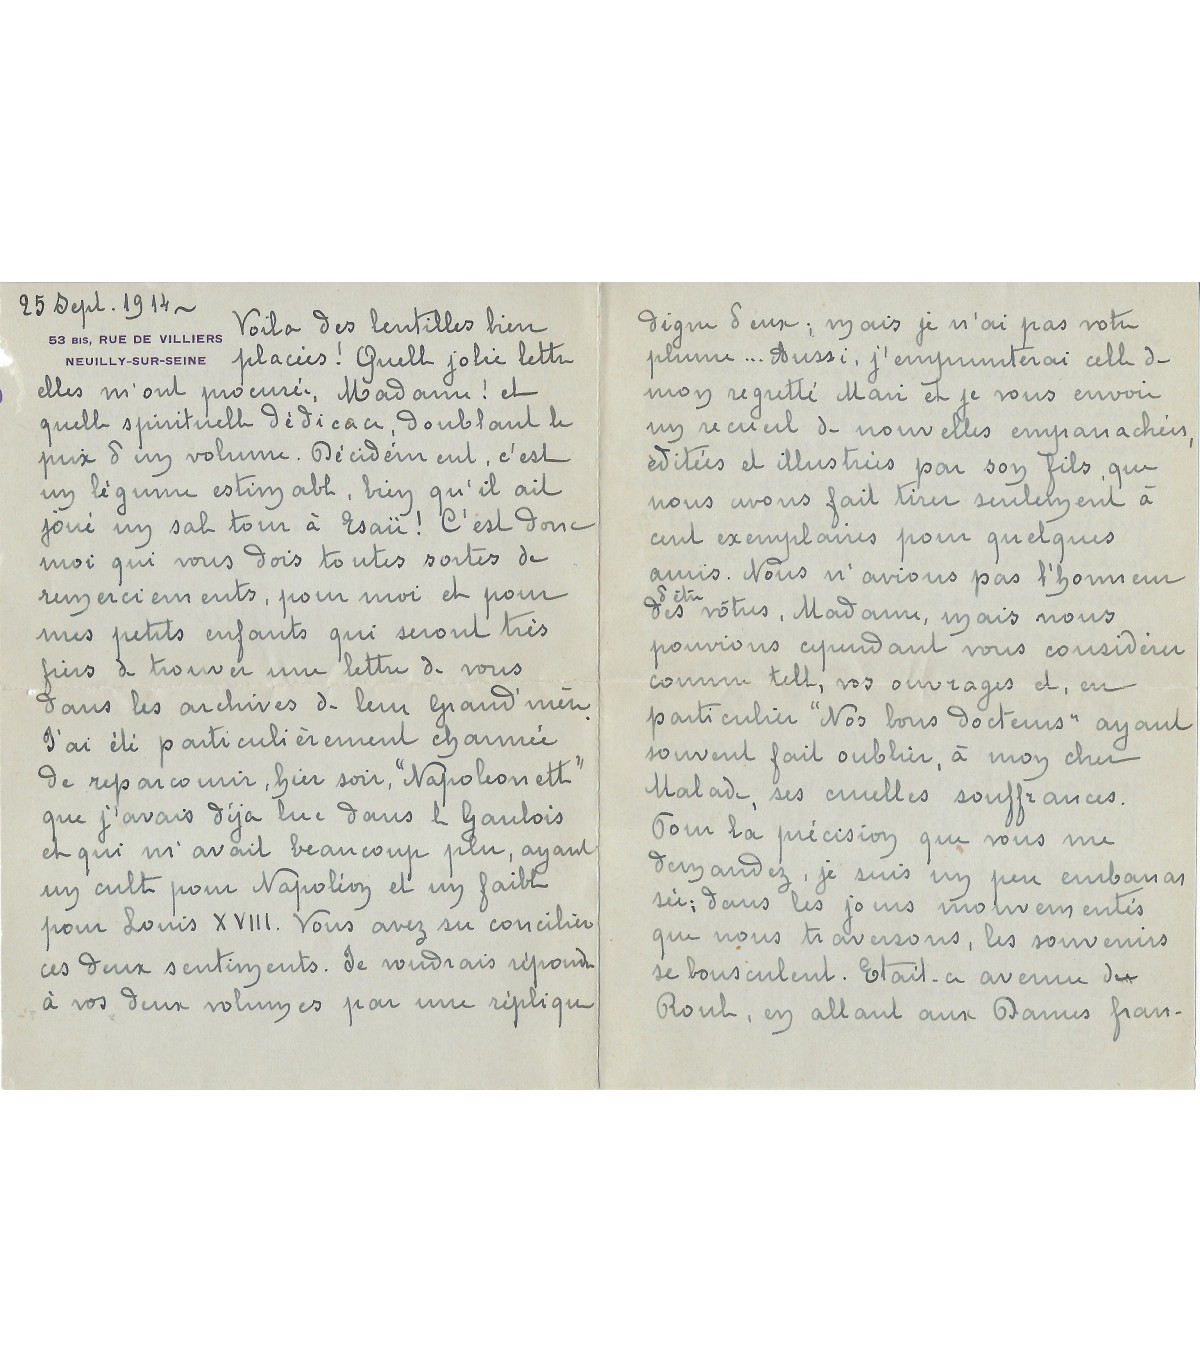 25 Sept. 1914
53 BIS, RUE DE VILLIERS
NEUILLY-SUR-SEINE
Voila des lentilles bien
placées! Quelle jolie lettre
elles m'ont procurée, Madame! et
quelle spirituelle dédicace, doublant le
prix d'un volume. Décidément, c'est
un légume estimable, bien qu'il ait
joué un sale tour à Esaü! C'est donc
moi qui vous dois toutes sortes de
remerciements, pour moi et pour
mes petits enfants qui seront très
fiers de trouver une lettre de vous
dans les archives de leur Grand'mère.
J'ai été particulièrement charmée
de reparcourir, hier soir, "Napoleonette"
que j'avais déja lue dans le Gaulois
et qui m'avait beaucoup plu, ayant
un culte pour Napoléon et un faible
pour Louis XVIII. Vous avez su concilier
ces deux sentiments. Je voudrais répondre
à vos deux volumes par une réplique
digne d'eux; mais je n'ai pas votre
plume... Aussi, j'emprunterai celle de
mon regretté Mari et je vous envoie
un recueil de nouvelles empanachées,
éditées et illustrées par son fils, que
nous avons fait tirer seulement à
cent exemplaires pour quelques
amis. Nous n'avions pas l'honneur
d'être
des vôtres, Madame, mais nous
pouvions cependant vous considérer
comme telle, vos ouvrages et, en
particulier "Nos bons docteurs" ayant
souvent fait oublier, à mon cher
Malade, ses cruelles souffrances.
Pour la précision que vous me
demandez, je suis un peu embarras
sée; dans les jours mouvementés
que nous traversons, les souvenirs
se bousculent. Etait-ce avenue du
Roule, en allant aux Dames fran-